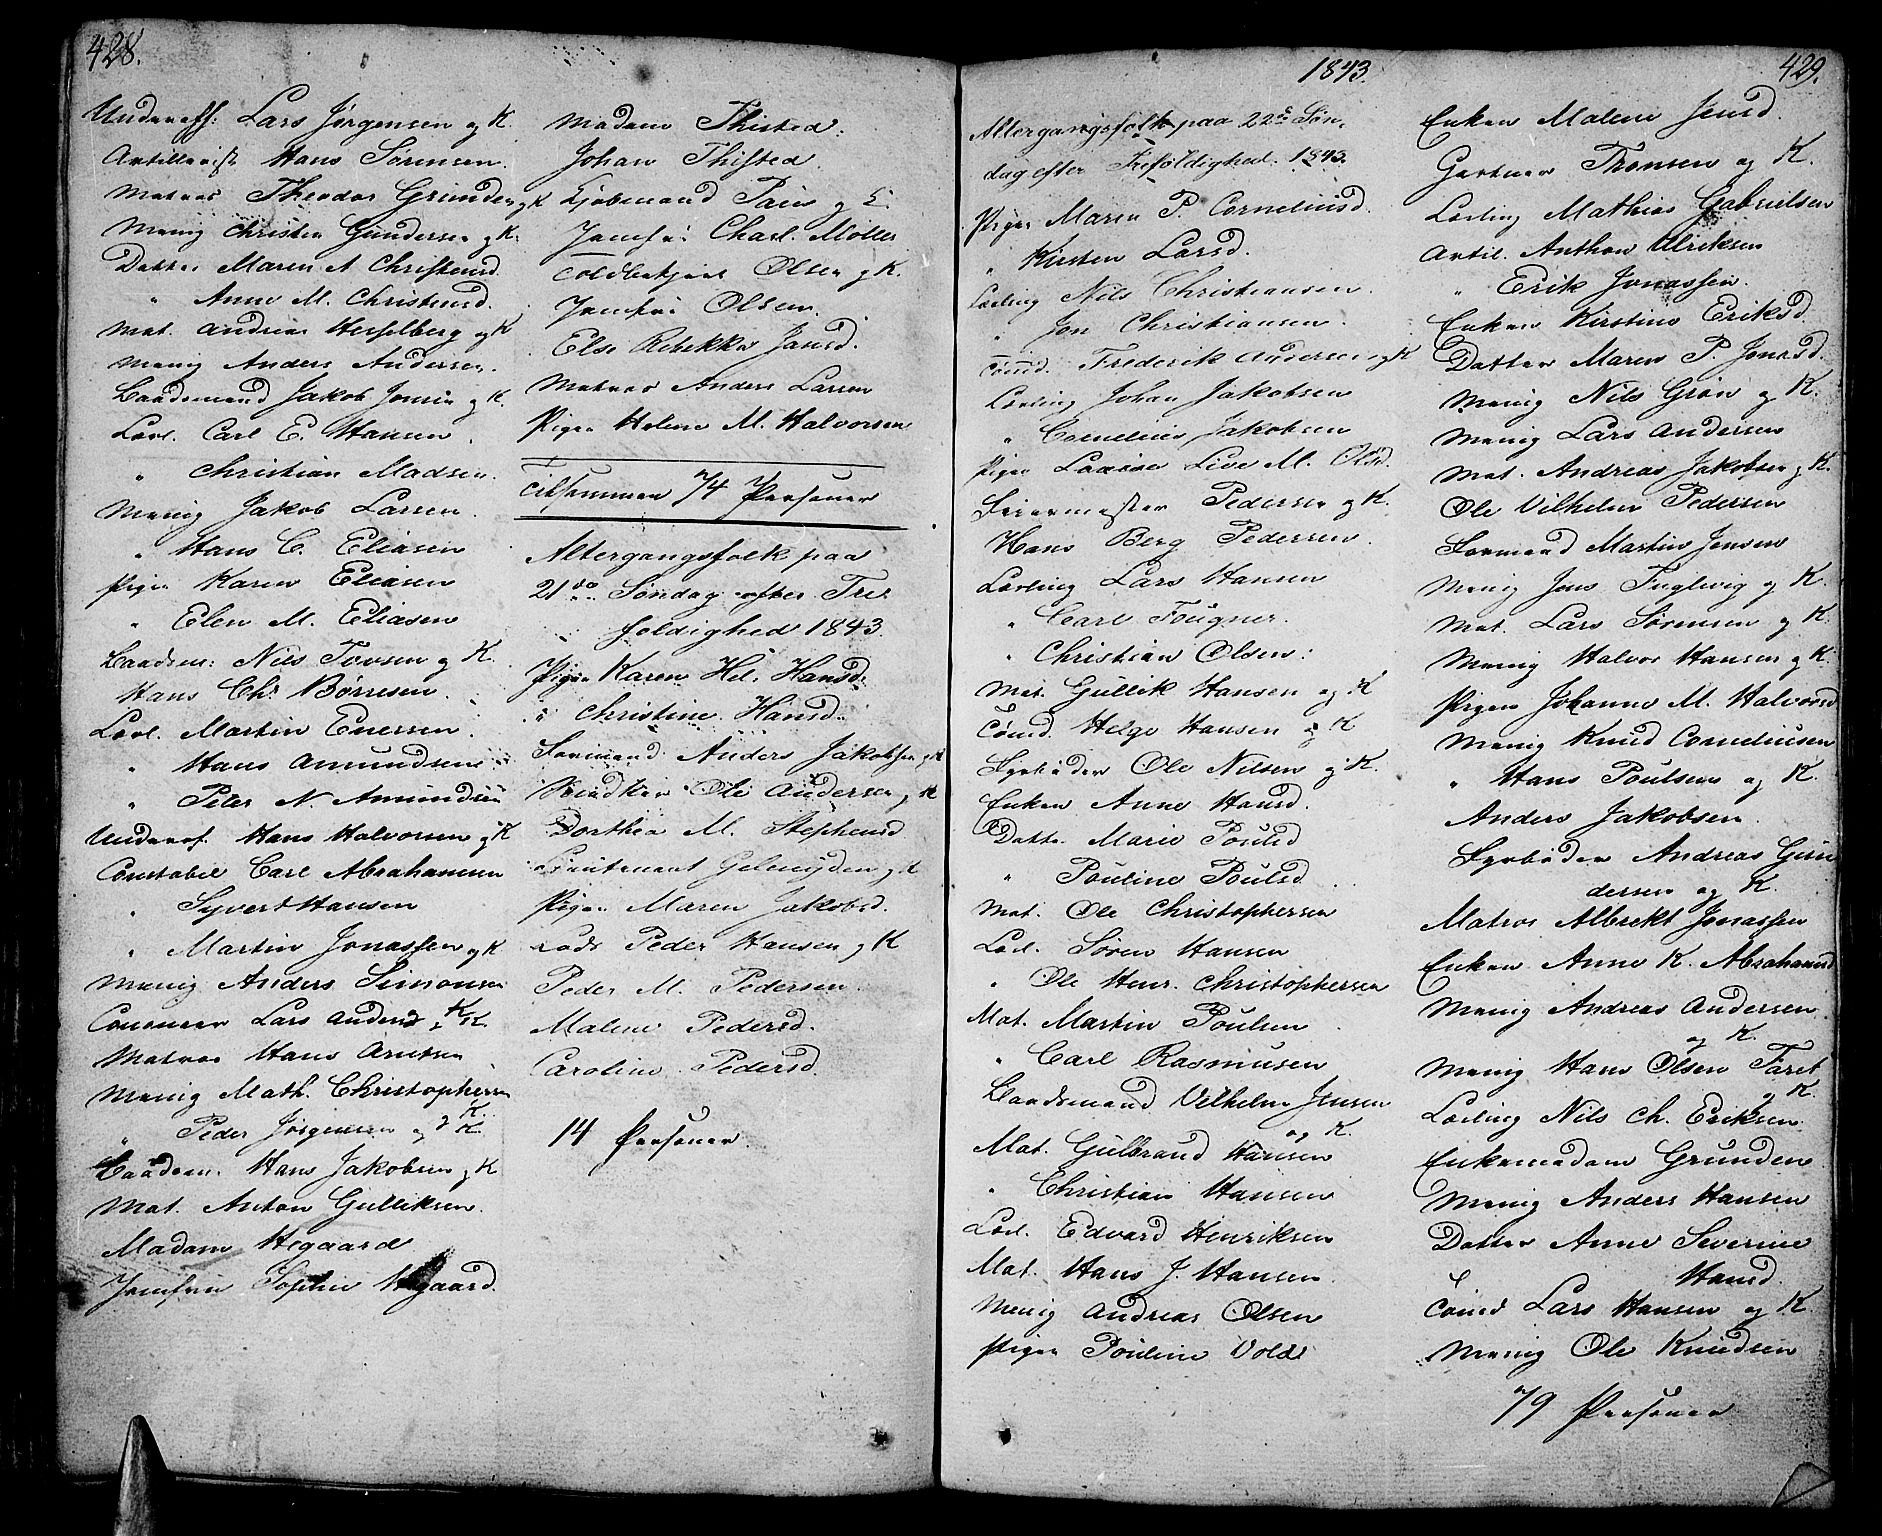 428.
Underoff: Lars Jørgensen og K.
Artillerist Hans Sørensen.
Matros Theodor Grunden og K
Menig Christen Gundersen og K.
Datter Maren A Christensd.
" Anne M. Christensd.
Mat. Andreas Hesselberg og K
Menig Anders Andersen.
Baadsmand Jakob Jonsen og K.
Lærl. Carl E. Hansen.
" Christian Madsen.
Menig Jakob Larsen.
" Hans C. Eliasen
Pigen Karen Eliasen
" Elen M. Eliasen
Baadsm: Nils Tovsen og K.
Hans Chr. Børresen.
Lærl. Martin Enersen.
" Hans Amundsen
" Peter N. Amundsen
Underof. Hans Halvorsen og K
Constabel Carl Abrahamsen
" Syvert Hansen
" Martin Jonassen og K
Menig Anders Simonsen
Lars Anders
Matros Hans Arntsen
Menig Math. Christophersen
" Peder Jørgensen og K.
Baadsm. Hans Jakobsen og K
Mat. Anton Gulliksen.
Madam Hegaard
Jomfru Sophie Hegaard.
Madam Thisted.
Johan Thisted
Kjøbmand Paus og K.
Jomfru Charl. Møller
Toldbetjent Olsen og K.
Jomfru Olsen.
Else Rebekka Jansd.
Matros Anders Larsen
Pigen Helene M. Halvorsen
Tilsammen 74 Personer
Altergangsfolk paa
21de Søndag efter Tre
foldighed 1843.
Pigen Karen Hel. Hansd.
" Christine Hansd.
Formand Anders Jakobsen og K
Ole Andersen og K
Dorthea M. Stephensd
Lieutenant Gelmuyden og K
Pigen Maren Jakobsd.
Lods Peder Hansen og K
Peder M. Pedersen.
Malene Pedersd.
Caroline Pedersd.
14 Personer.
1843.
429.
Altergangsfolk paa 22de Søn,
dag efter Trefoldighed. 1843.
Pigen Maren P. Corneliusd.
" Kirsten Larsd.
Lærling Nils Christiansen.
" Jon Christiansen.
Tømd. Frederik Andersen og K
Lærling Johan Jakobsen
" Cornelius Jakobsen
Pigen Lovise Live M. Olsd.
Feiermester Pedersen og K.
Hans Berg Pedersen.
Lærling Lars Hansen
" Carl Fougner.
" Christian Olsen.
Mat. Gullik Hansen og K
Tømd. Helge Hansen og K
Fyrbøder Ole Nilsen og K.
Enken Anne Hansd.
Datte. Marie Poulsd
" Pouline Poulsd
Mat. Ole Christophersen
Lærl. Søren Hansen
" Ole Henr. Christophersen
Mat. Martin Poulsen
" Carl Rasmusen
Baadsmand Vilhelm Jensen
og K.
Mat. Gulbrand Hansen
" Christian Hansen
Lærl. Edvard Henriksen
Mat. Hans J. Hansen.
Menig Andreas Olsen
Pigen Pouline Vold
Enken Malene Jensd.
Gartner Thomsen og K.
Lærling Mathias Gabrielsen
Artil. Anthon Ulriksen
" Erik Jonassen.
Enken Kirstine Eriksd.
Datter Maren P. Jonasd.
Menig Nils Grøn og K.
Menig Lars Andersen
Mat. Andreas Jakobsen og K.
Ole Vilhelm Pedersen
Formand Martin Jensen
Menig Jens Fuglevig og K
Mat. Lars Sørensen og K
Menig Halvor Hansen og K.
Pigen Johanne M. Halvorsd
Menig Knud Corneliusen
" Hans Poulsen og K.
Anders Jakobsen.
Fyrbøder Andreas Gun
dersen og K.
Matros Albrekt Jonassen
Enken Anne K. Abrahamsd
Menig Andreas Andersen
og K.
Menig Hans Olsen Faret
og K
Lærling Nils Ch. Eriksen.
Enkemadam Grunden
Menig Anders Hansen
Datter Anne Severine
Hansd.
Tømd Lars Hansen og K.
Menig Ole Knudsen
79 Personer